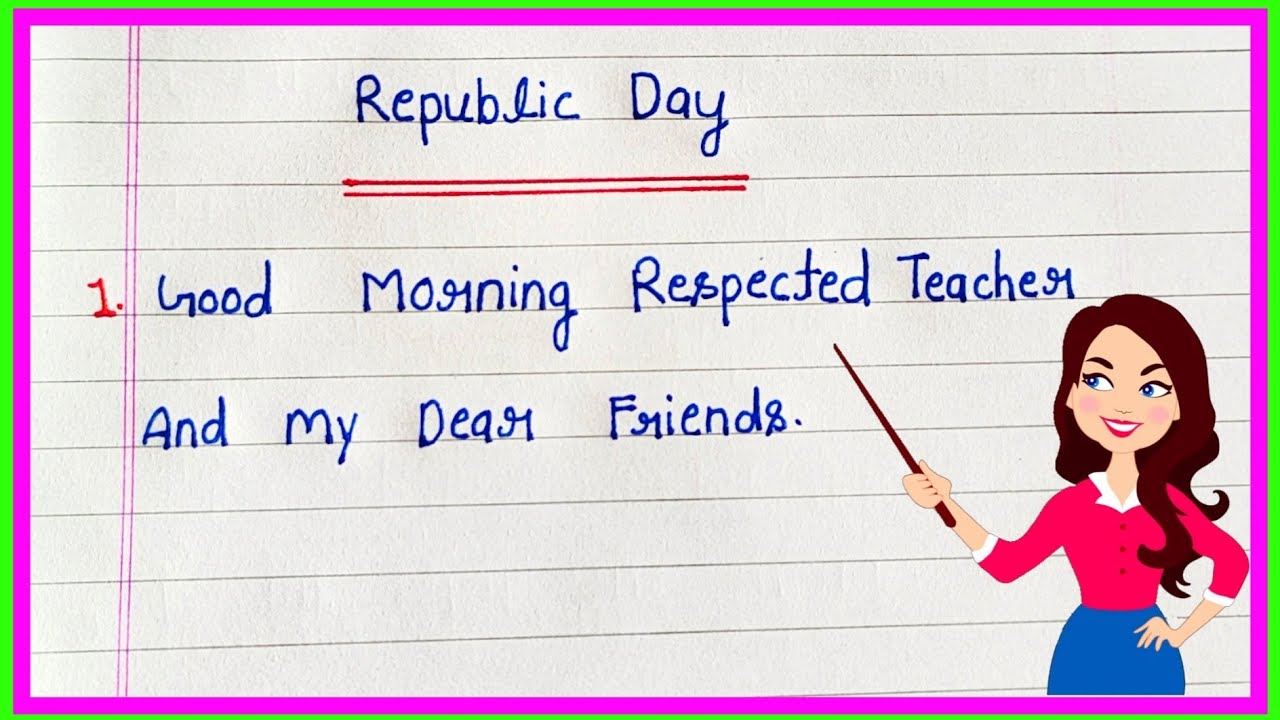 Republic Day
1. Good Morning Respected Teacher
And My Dear Friends.